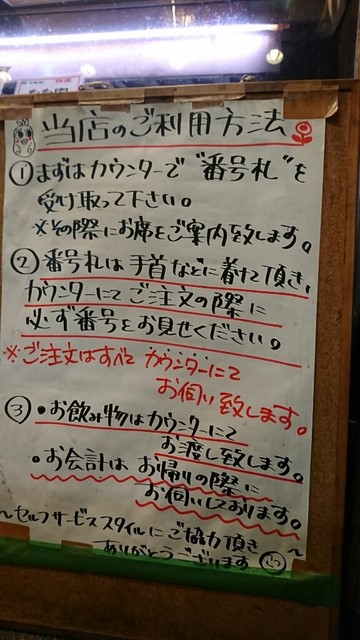 当店のご利用方法
①まずはカウンターで"番号札"を
受け取って下さい。
※その際にお席をご案内致します。
②番号札は手首などに着けて頂き、
カウンターにてご注文の際に
必ず番号をお見せください。
※ご注文はすべてカウンターにて
お伺い致します。
③・お飲み物はカウンターにて
お渡し致します。
・お会計はお帰りの際に
お伺いしております。
～セルフサービススタイルにご協力頂き
ありがとうございます～